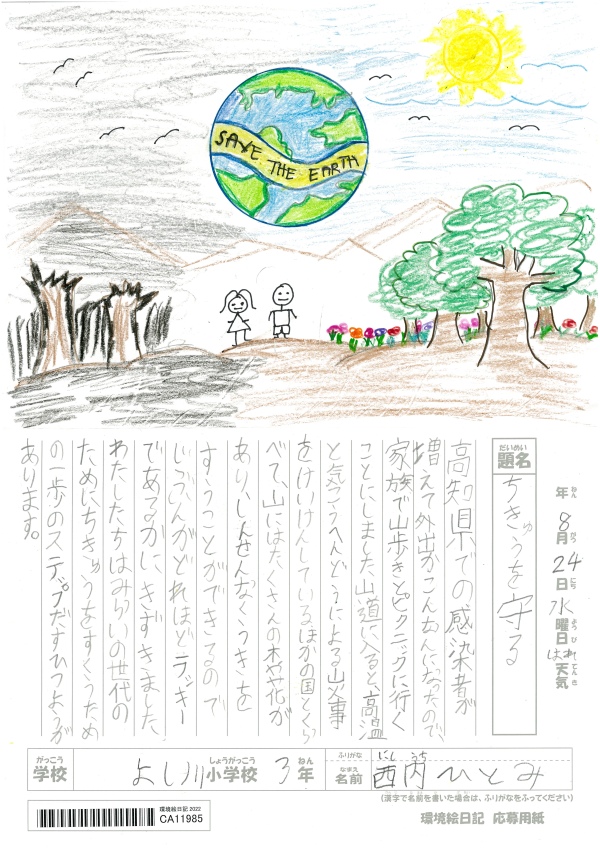 SAVE THE EARTH
年 8月 24日 水曜日 はれ 天気
ねん がつ にち ようび てんき
だいめい
題名
ちきゅうを守る
高知県での感染者が
増えて外出がこんなんになったので、
家族で山歩きとピクニックに行く
ことにしました。山道に入ると、高温
と気こうへんどうによる山火事
をけいけんしているほかの国とくら
べて、山にはたくさんの木や花が
あり、しんせんなくうきを
すうことができるので
じぶんがどれほどラッキー
であるかにきずきました。
わたしたちはみらいの世代の
ために、ちきゅうをすくうため
の一歩のステップだすひつようが
あります。
がっこう
学校
よし川小学校 3年
しょうがっこう ねん
ふりがな にし うち
なまえ
名前 西内ひとみ
(漢字で名前を書いた場合は、ふりがなをふってください)
環境絵日記 2022
CA11985
環境絵日記 応募用紙